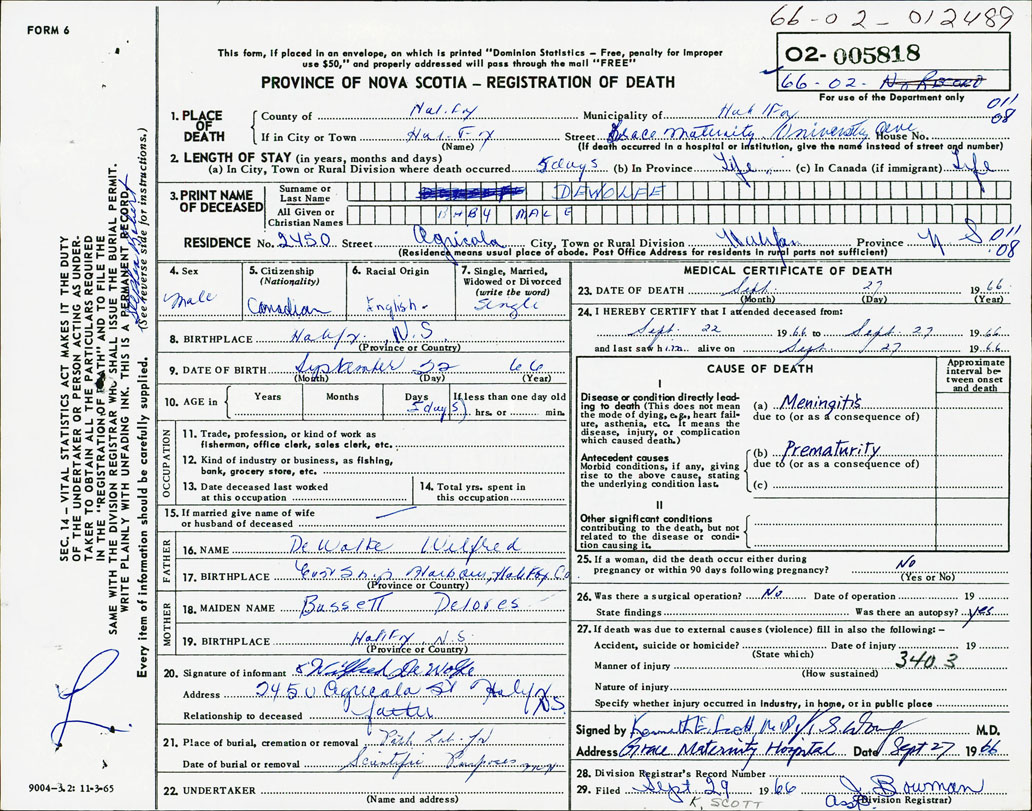 66-02-012489
FORM 6
This form, if placed in an envelope, on which is printed "Dominion Statistics – Free, penalty for improper
use $50," and properly addressed will pass through the mail "FREE"
O2- 005818
66-02-No Record
For use of the Department only
PROVINCE OF NOVA SCOTIA – REGISTRATION OF DEATH
011
08
1. PLACE OF DEATH
County of Halifax Municipality of Halifax
If in City or Town Halifax Street Grace Maternity University Ave House No.
(Name) (If death occurred in a hospital or institution, give the name instead of street and number)
2. LENGTH OF STAY (in years, months and days)
(a) In City, Town or Rural Division where death occurred 5 days (b) In Province Life (c) In Canada (if immigrant) Life
3. PRINT NAME OF DECEASED
Surname or Last Name DEWOLFE
All Given or Christian Names BABY MALE
RESIDENCE No. 2450 Street Agricola City, Town or Rural Division Halifax Province N S 011 08
(Residence means usual place of abode. Post Office Address for residents in rural parts not sufficient)
4. Sex
Male
5. Citizenship
(Nationality)
Canadian
6. Racial Origin
English
7. Single, Married,
Widowed or Divorced
(write the word)
Single
8. BIRTHPLACE Halifax, N.S
(Province or Country)
9. DATE OF BIRTH September 22 66
(Month) (Day) (Year)
10. AGE in Years Months Days If less than one day old
5 days hrs. or min.
OCCUPATION
11. Trade, profession, or kind of work as
fisherman, office clerk, sales clerk, etc.
12. Kind of industry or business, as fishing,
bank, grocery store, etc.
13. Date deceased last worked
at this occupation
14. Total yrs. spent in
this occupation
15. If married give name of wife
or husband of deceased
FATHER
16. NAME DeWolfe Wilfred
17. BIRTHPLACE Harbour, Halifax Co
(Province or Country)
MOTHER
18. MAIDEN NAME Bassett Delores
19. BIRTHPLACE Halifax, N.S.
(Province or Country)
20. Signature of informant x Wilfred DeWolfe
Address 2450 Agricola St Halifax N.S.
Relationship to deceased father
21. Place of burial, cremation or removal Path Lab
Date of burial or removal Scientific Purposes
22. UNDERTAKER
(Name and address)
MEDICAL CERTIFICATE OF DEATH
23. DATE OF DEATH Sept. 27 1966
(Month) (Day) (Year)
24. I HEREBY CERTIFY that I attended deceased from:
Sept. 22 1966 to Sept. 27 1966
and last saw him alive on Sept. 27 1966
CAUSE OF DEATH
Approximate
interval be-
tween onset
and death
I
Disease or condition directly lead-
ing to death (This does not mean
the mode of dying, e.g., heart fail-
ure, asthenia, etc. It means the
disease, injury, or complication
which caused death.)
(a) Meningitis
due to (or as a consequence of)
Antecedent causes
Morbid conditions, if any, giving
rise to the above cause, stating
the underlying condition last.
(b) Prematurity
due to (or as a consequence of)
(c)
II
Other significant conditions
contributing to the death, but not
related to the disease or condi-
tion causing it.
25. If a woman, did the death occur either during
pregnancy or within 90 days following pregnancy? No
(Yes or No)
26. Was there a surgical operation? No Date of operation 19
State findings Was there an autopsy? yes
27. If death was due to external causes (violence) fill in also the following: –
Accident, suicide or homicide? Date of injury 19
(State which)
Manner of injury 340.3
(How sustained)
Nature of injury
Specify whether injury occurred in industry, in home, or in public place
Signed by Kenneth E. Scott M.D. M.D.
Address Grace Maternity Hospital Date Sept 27 1966
28. Division Registrar's Record Number
29. Filed Sept. 29 1966 J. Bowman
K. SCOTT Asst (Division Registrar)
SEC. 14 – VITAL STATISTICS ACT MAKES IT THE DUTY
OF THE UNDERTAKER OR PERSON ACTING AS UNDER-
TAKER TO OBTAIN ALL THE PARTICULARS REQUIRED
IN THE "REGISTRATION OF DEATH" AND TO FILE THE
SAME WITH THE DIVISION REGISTRAR WHO SHALL ISSUE THE BURIAL PERMIT.
WRITE PLAINLY WITH UNFADING INK. THIS IS A PERMANENT RECORD.
Every item of information should be carefully supplied. (See reverse side for instructions.)
9004-3.2: 11-3-65